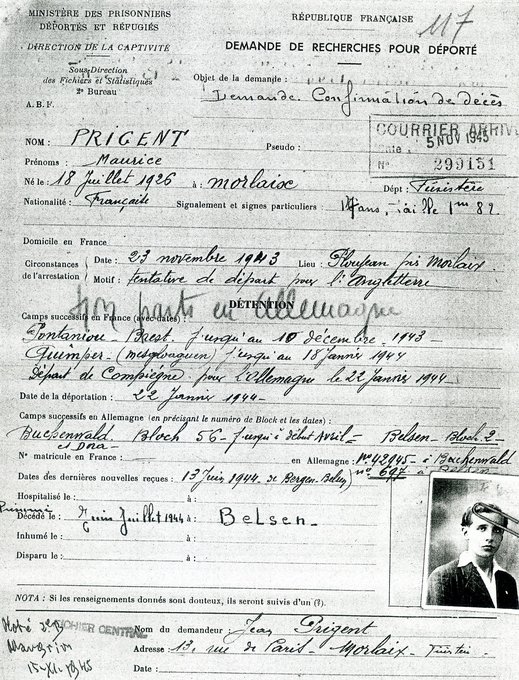 MINISTÈRE DES PRISONNIERS
DÉPORTÉS ET RÉFUGIÉS
DIRECTION DE LA CAPTIVITÉ
Sous-Direction
des Fichiers et Statistiques
2e Bureau
A. B. F.
RÉPUBLIQUE FRANÇAISE
117
DEMANDE DE RECHERCHES POUR DÉPORTÉ
Objet de la demande :
Demande Confirmation de décès
COURRIER ARRIV
Date : 5 NOV 1945
N° 299151
NOM : PRIGENT Pseudo :
Prénoms : Maurice
Né le : 18 Juillet 1926 à : Morlaix Dépt : Finistère
Nationalité : Française Signalement et signes particuliers : ans, Taille 1m 82
Domicile en France
Circonstances de l'arrestation
Date : 23 novembre 1943 Lieu : Ploujean près Morlaix
Motif : tentative de départ pour l'Angleterre
DÉTENTION
parti en Allemagne
Camps successifs en France (avec dates) :
Pontaniou - Brest. jusqu'au 10 décembre 1943
Quimper - (Mesgloaguen) jusqu'au 18 Janvier 1944
Départ de Compiègne pour l'Allemagne le 22 Janvier 1944
Date de la déportation : 22 Janvier 1944
Camps successifs en Allemagne (en précisant le numéro de Block et les dates) :
Buchenwald Bloch 56 - jusqu'à début Avril - Belsen - Bloch 2
et Dora
N° matricule en France : en Allemagne : N° 42945 à Buchenwald
n° 697 à Belsen
Dates des dernières nouvelles reçues : 13 Juin 1944 de Bergen-Belsen
Hospitalisé le : à :
Présumé
Décédé le : Juin Juillet 1944 à : Belsen
Inhumé le : à :
Disparu le : à :
NOTA : Si les renseignements donnés sont douteux, ils seront suivis d'un (?).
Noté
15-XI-1945
FICHIER CENTRAL
Nom du demandeur : Jean Prigent
Adresse : 13, rue de Paris - Morlaix - Finistère
Date :